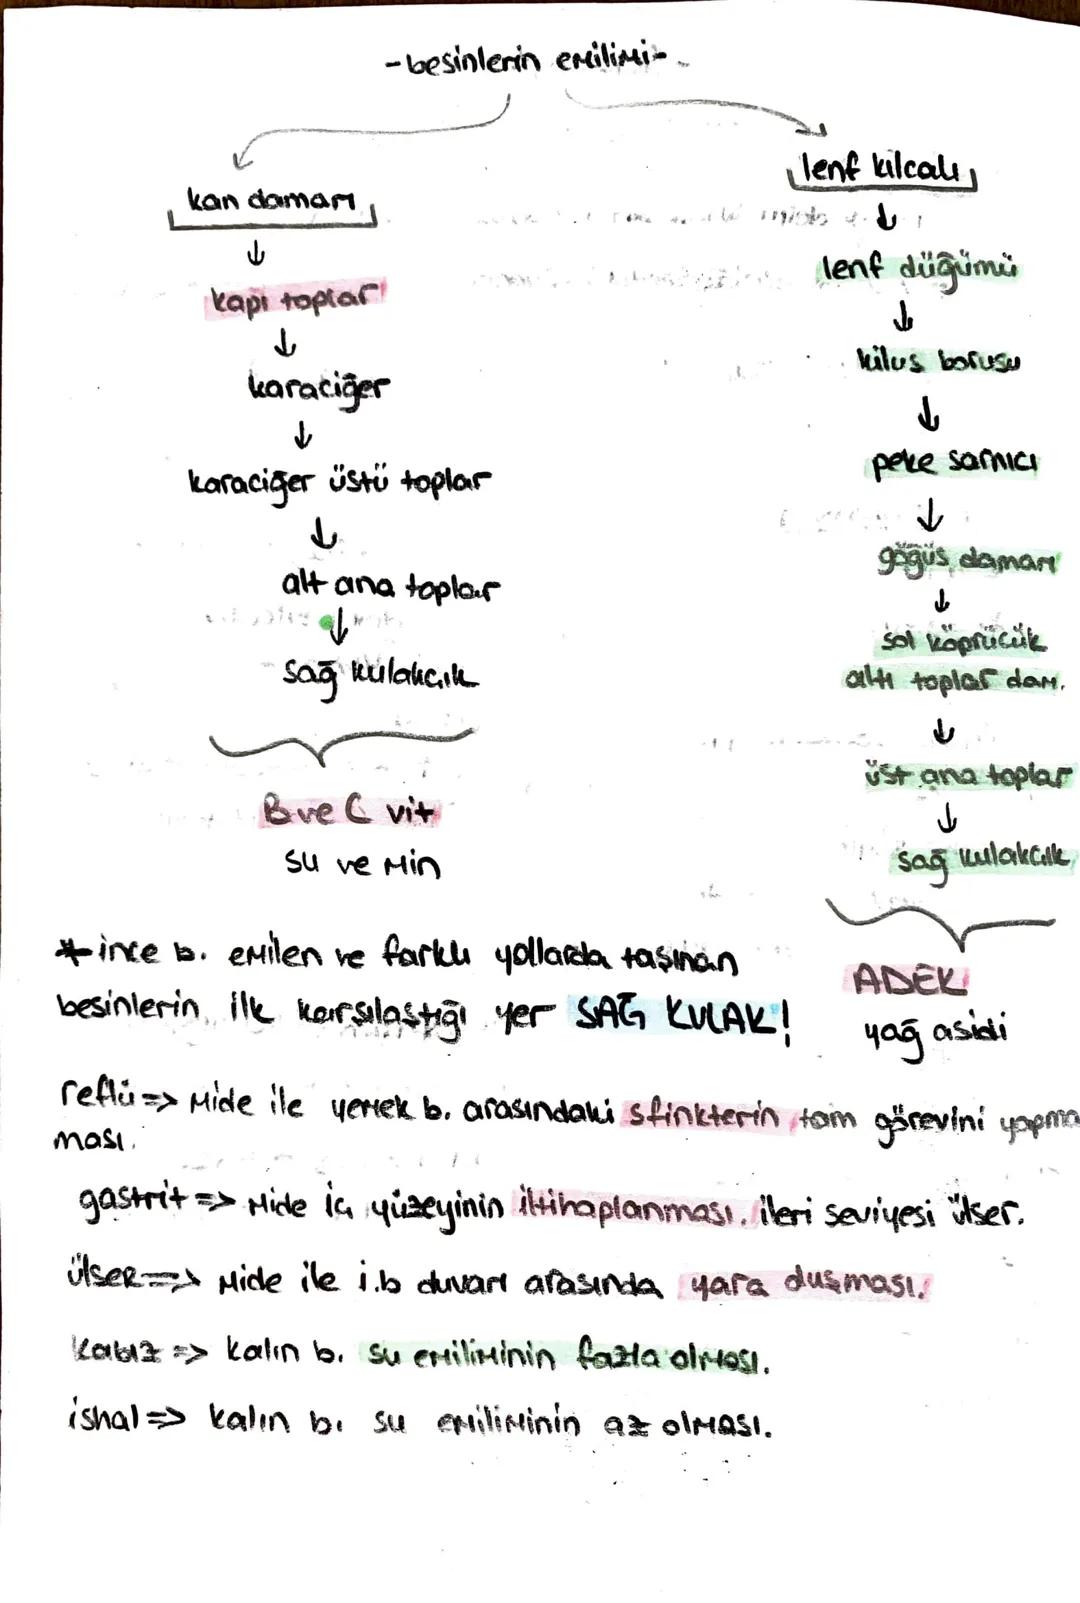 -besinlerin emilimi-
kan damarı
↓
kapı toplar
↓
karaciğer
↓
karaciğer üstü toplar
↓
alt ana toplar
↓
sağ kulakçık
B ve C vit
su ve min
lenf kılcalı
↓
lenf düğümü
↓
kilus borusu
↓
peke sarnıcı
↓
göğüs damarı
↓
sol köprücük
altı toplar dam.
↓
üst ana toplar
↓
sağ kulakcık
ADEK
yağ asidi
* ince b. emilen ve farklı yollarda taşınan
besinlerin ilk karşılaştığı yer SAĞ KULAK!
reflü => mide ile yemek b. arasındaki sfinkterin tam görevini yapma
ması.
gastrit => mide iç yüzeyinin iltihaplanması. ileri seviyesi ülser.
ülser => mide ile i.b duvarı arasında yara duşması.
kabız => kalın b. su emiliminin fazla olması.
ishal => kalın b. su emiliminin az olması.